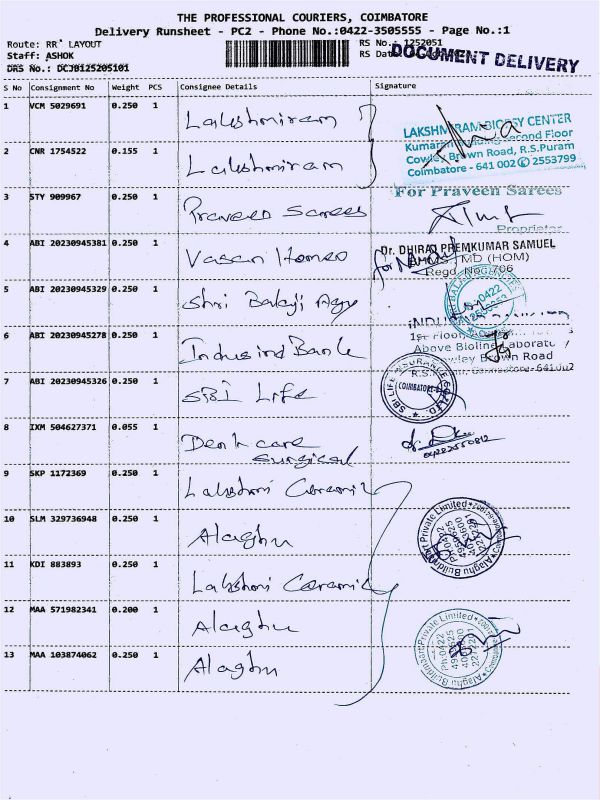 THE PROFESSIONAL COURIERS, COIMBATORE
Delivery Runsheet - PC2 - Phone No.:0422-3505555 - Page No.:1
Route: RR LAYOUT
RS No.: 1252051
Staff: ASHOK
RS Dat
DOCUMENT DELIVERY
DRS No.: DCJ0125205101
S No Consignment No Weight PCS Consignee Details Signature
1 VCM 5029691 0.250 1 Lakshmiram
LAKSHMIRAM BIOPSY CENTER
Second Floor
Cowley Brown Road, R.S.Puram
Coimbatore - 641 002 2553799
2 CNR 1754522 0.155 1 Lakshmiram
For Praveen Sarees
3 STY 909967 0.250 1 Praveen Sarees
Proprietor
4 ABI 20230945381 0.250 1 Vasan Homeo
Dr. DHIRAJ PREMKUMAR SAMUEL
MD (HOM)
Regd. No: 706
5 ABI 20230945329 0.250 1 Shri Balaji Agy
0422
6 ABI 20230945278 0.250 1 Indusind Bank
1st Floor,
Above Bioline Laboratory
Cowley Brown Road
7 ABI 20230945326 0.250 1 SBI Life
SBI LIFE INSURANCE
COIMBATORE
8 IXM 504627371 0.055 1 Dent care
Surgical
9 SKP 1172369 0.250 1 Lakshmi Ceramic
10 SLM 329736948 0.250 1 Alaghu
Alaghu Buildmart Private Limited
11 KDI 883893 0.250 1 Lakshmi Ceramic
12 MAA 571982341 0.200 1 Alaghu
Alaghu Buildmart Private Limited
13 MAA 103874062 0.250 1 Alaghu